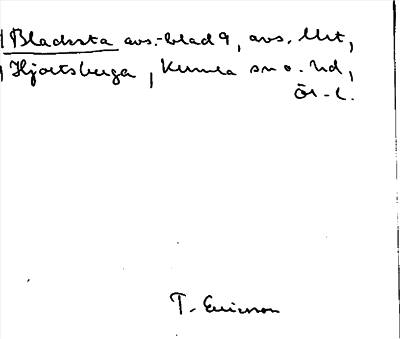 Bladsta avs.-blad 9, avs. Mt,
Hjortsberga, Kumla sn o. hd,
Ör-l.
T. Ericsson